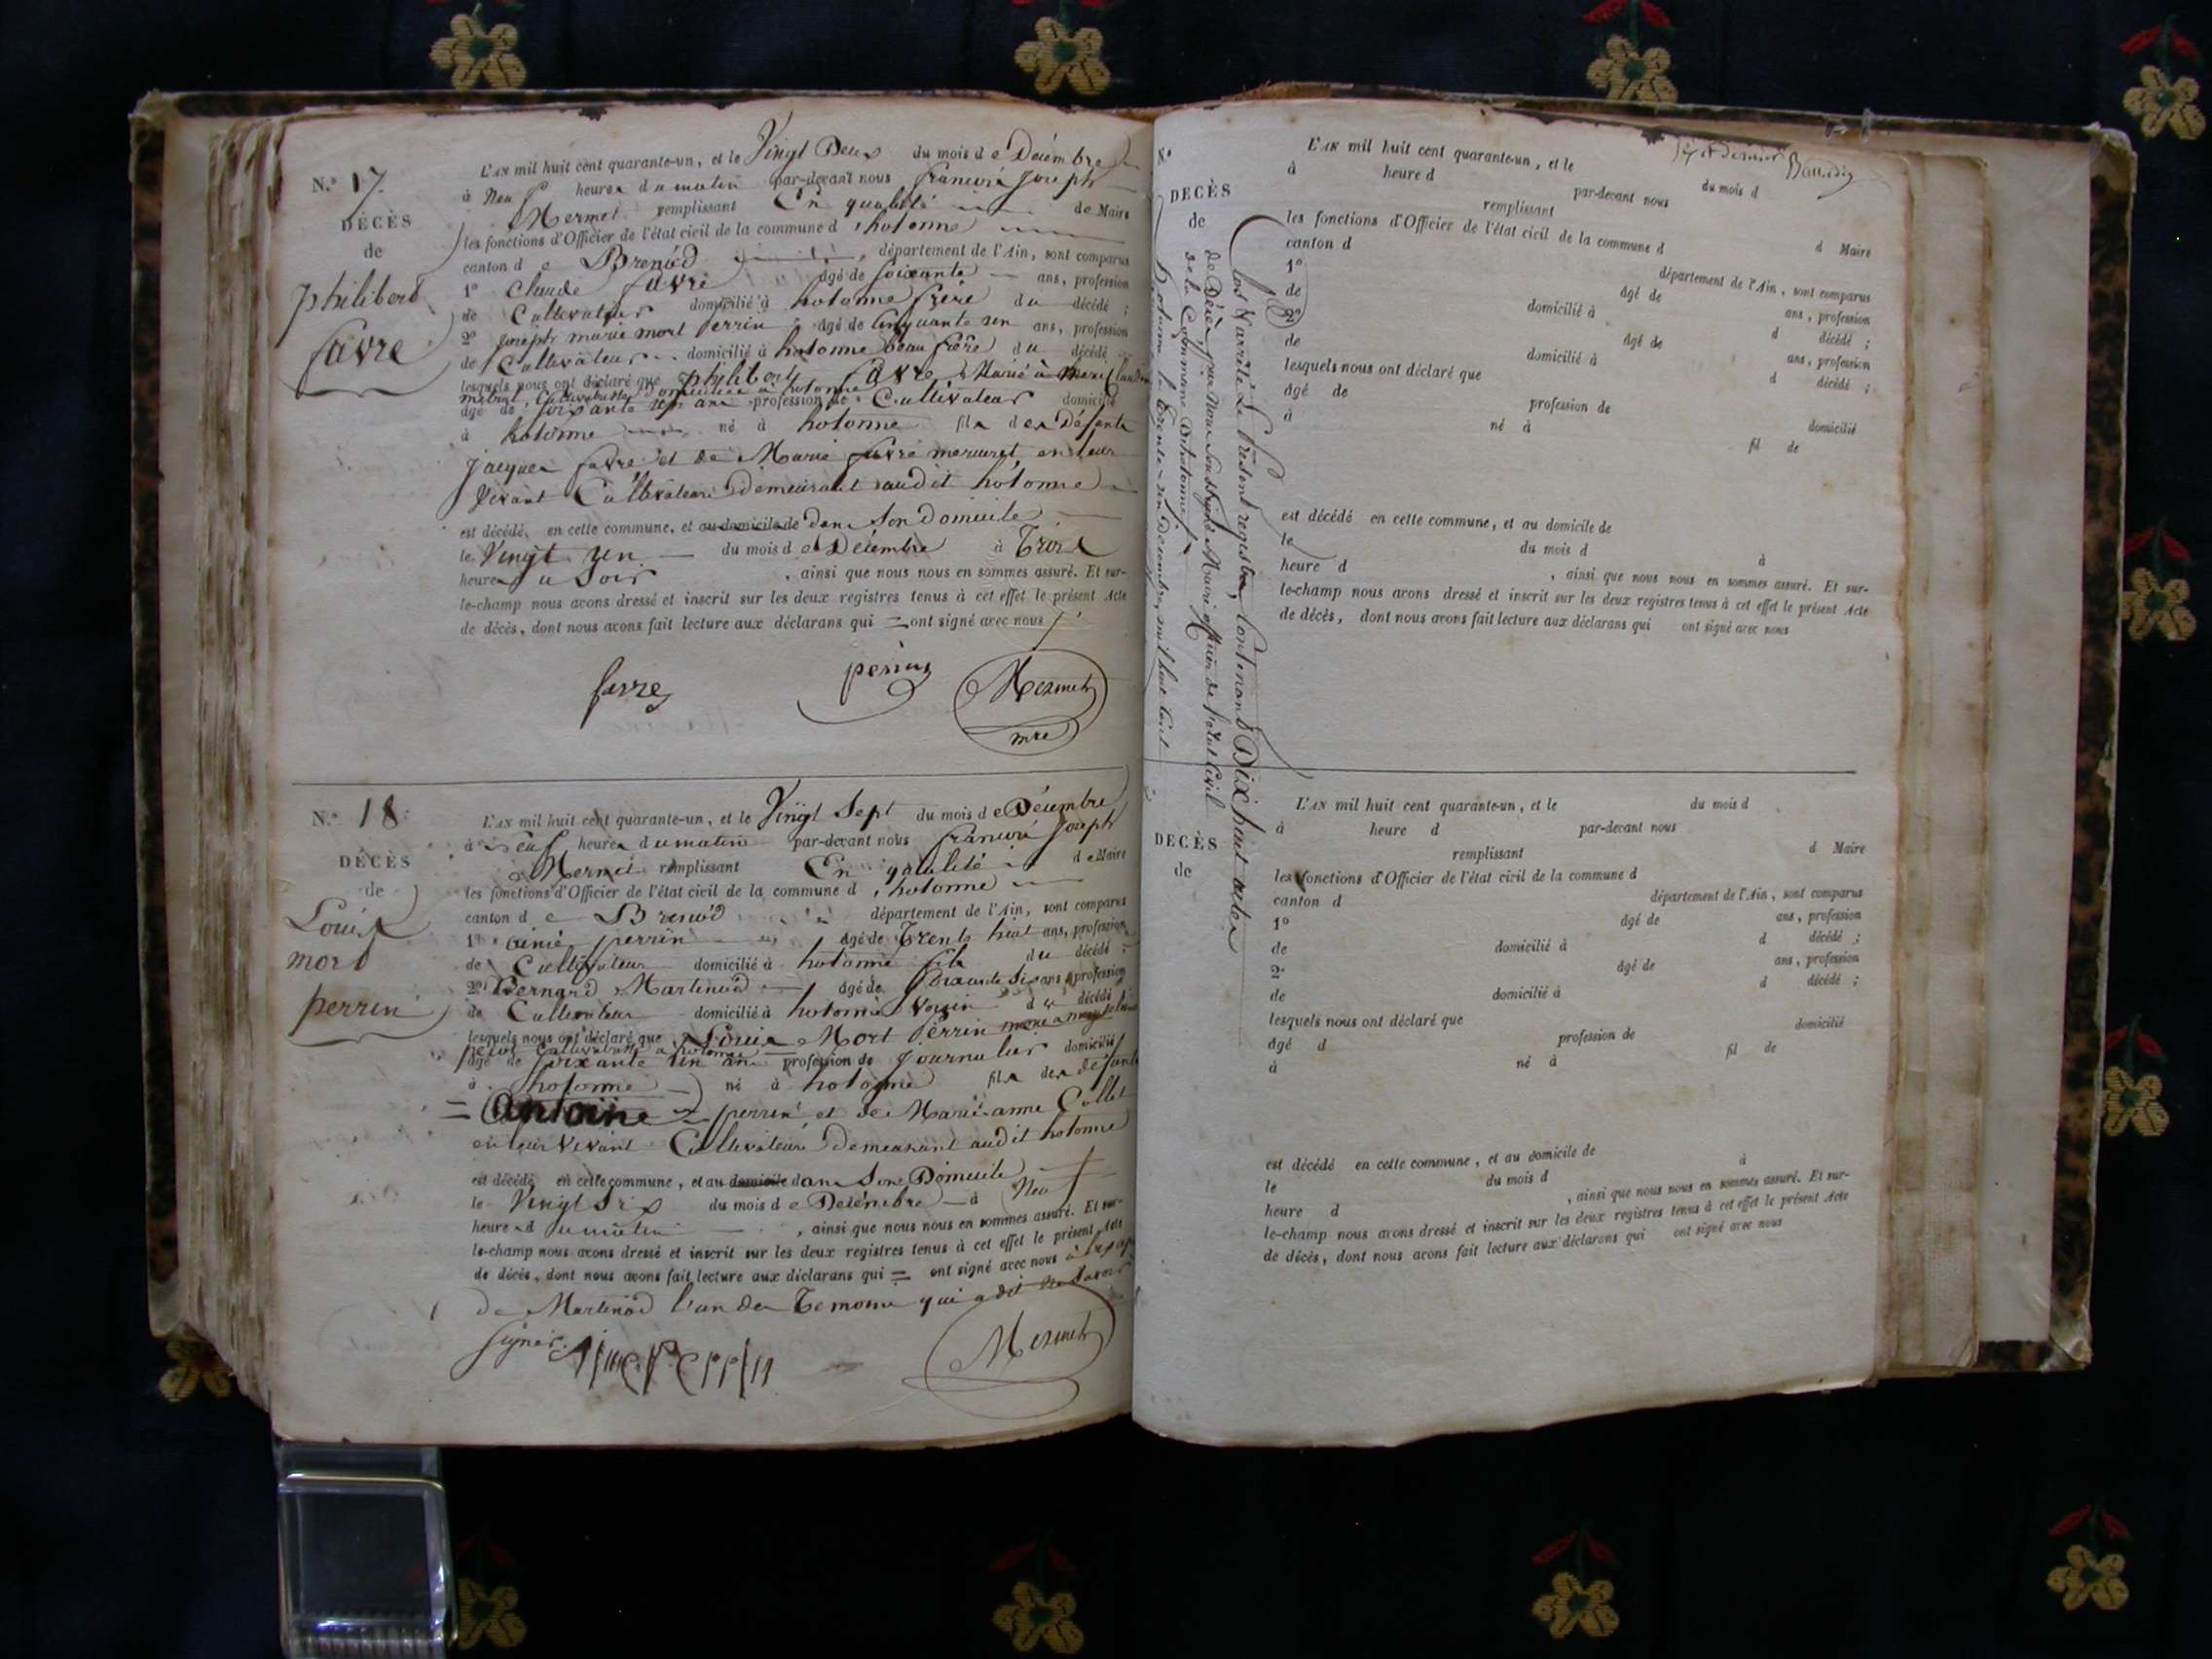 N.º 17.
DÉCÈS
de
philibert
favre
L'AN mil huit cent quarante-un, et le Vingt Deux du mois d e Décembre
à Neuf heures du matin par-devant nous francois joseph
Mermet remplissant En qualité de Maire
les fonctions d'Officier de l'état civil de la commune d'hotonne
canton d e Brenod, département de l'Ain, sont comparus
1º Claude favre âgé de soixante ans, profession
de Cultivateur domicilié à hotonne frère du décédé ;
2º joseph marie mort Perrin âgé de Cinquante un ans, profession
de Cultivateur domicilié à hotonne beau frère du décédé
lesquels nous ont déclaré que philibert favre Marié à
Cultivatrice domiciliée à hotonne
âgé de soixante un ans profession de Cultivateur domicilié
à hotonne né à hotonne fils des Défunts
jacques favre et de Marie favre mercuret en leur
Vivant Cultivateurs Demeurant audit hotonne
est décédé, en cette commune, et au domicile de dans son Domicile
le Vingt un du mois d e Décembre à Trois
heures du Soir, ainsi que nous nous en sommes assuré. Et sur-
le-champ nous avons dressé et inscrit sur les deux registres tenus à cet effet le présent Acte
de décès, dont nous avons fait lecture aux déclarans qui = ont signé avec nous
favre
perrin
Mermet
mre
N.º 18.
DÉCÈS
de
Louis
mort
perrin
L'AN mil huit cent quarante-un, et le Vingt Sept du mois d e Décembre
à neuf heures du matin par-devant nous francois joseph
Mermet remplissant En qualité d e Maire
les fonctions d'Officier de l'état civil de la commune d'hotonne
canton d e Brenod département de l'Ain, sont comparus
1º aimé perrin âgé de Trente huit ans, profession
de Cultivateur domicilié à hotonne fils du décédé ;
2º Bernard Martinod âgé de soixante Six ans, profession
de Cultivateur domicilié à hotonne Voisin du décédé ;
lesquels nous ont déclaré que Louis Mort Perrin
Cultivatrice à hotonne
âgé de soixante un an profession de journalier domicilié
à hotonne né à hotonne fils des défunts
= antoine = perrin et de Marie-anne Collet
en leur Vivant Cultivateurs Demeurant audit hotonne
est décédé en cette commune, et au domicile dans Son Domicile
le Vingt Six du mois d e Décembre à Neuf
heures du matin, ainsi que nous nous en sommes assuré. Et sur-
le-champ nous avons dressé et inscrit sur les deux registres tenus à cet effet le présent Acte
de décès, dont nous avons fait lecture aux déclarans qui = ont signé avec nous à
de Martinod l'un des Temoins qui a dit ne savoir
signer.
Mermet
Nº
DÉCÈS
de
L'AN mil huit cent quarante-un, et le du mois d
à heure d par-devant nous
remplissant d Maire
les fonctions d'Officier de l'état civil de la commune d
canton d département de l'Ain, sont comparus
1º âgé de ans, profession
de domicilié à d décédé ;
2º âgé de ans, profession
de domicilié à d décédé ;
lesquels nous ont déclaré que
âgé de profession de domicilié
à né à fil de
est décédé en cette commune, et au domicile de
le du mois d à
heure d, ainsi que nous nous en sommes assuré. Et sur-
le-champ nous avons dressé et inscrit sur les deux registres tenus à cet effet le présent Acte
de décès, dont nous avons fait lecture aux déclarans qui ont signé avec nous
Clos & arrêté Le Présent registre, Contenant Dix huit actes
de Décès, par Nous Soussigné Maire officier de l'état Civil
de la Commune D'hotonne,
hotonne le Trente-un Décembre, mil huit Cent
DÉCÈS
de
L'AN mil huit cent quarante-un, et le du mois d
à heure d par-devant nous
remplissant d Maire
les fonctions d'Officier de l'état civil de la commune d
canton d département de l'Ain, sont comparus
1º âgé de ans, profession
de domicilié à d décédé ;
2º âgé de ans, profession
de domicilié à d décédé ;
lesquels nous ont déclaré que
âgé d profession de domicilié
à né à fil de
est décédé en cette commune, et au domicile de
le du mois d à
heure d, ainsi que nous nous en sommes assuré. Et sur-
le-champ nous avons dressé et inscrit sur les deux registres tenus à cet effet le présent Acte
de décès, dont nous avons fait lecture aux déclarans qui ont signé avec nous